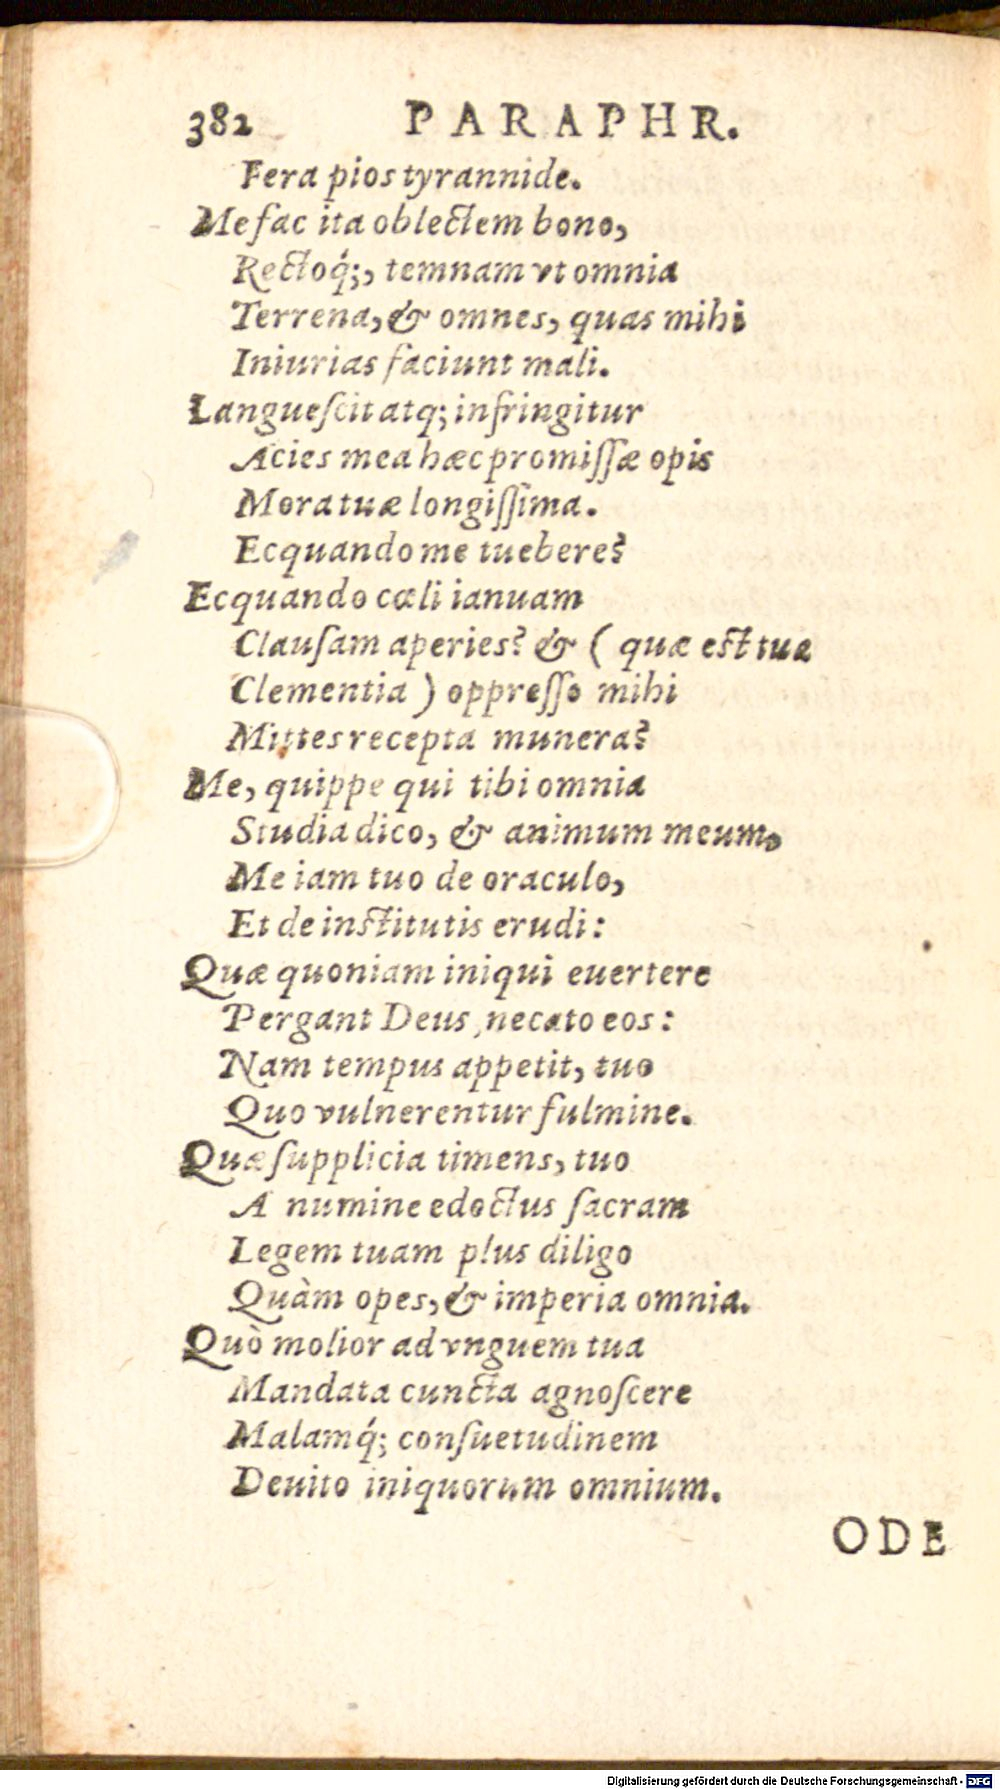 382 PARAPHR.
Fera pios tyrannide.
Me fac ita oblectem bono,
Rectoq́;, temnam vt omnia
Terrena, & omnes, quas mihi
Iniurias faciunt mali.
Langueſcit atq; infringitur
Acies mea hæc promiſſæ opis
Mora tuæ longiſſima.
Ecquando me tuebere?
Ecquando cæli ianuam
Clauſam aperies? & ( quæ eſt tua
Clementia ) oppreſſo mihi
Mittes recepta munera?
Me, quippe qui tibi omnia
Studia dico, & animum meum,
Me iam tuo de oraculo,
Et de inſtitutis erudi:
Quæ quoniam iniqui euertere
Pergant Deus, necato eos:
Nam tempus appetit, tuo
Quo vulnerentur fulmine.
Quæ ſupplicia timens, tuo
A numine edoctus ſacram
Legem tuam plus diligo
Quàm opes, & imperia omnia.
Quò molior ad vnguem tua
Mandata cuncta agnoſcere
Malamq́; conſuetudinem
Deuito iniquorum omnium.
ODE
Digitalisierung gefördert durch die Deutsche Forschungsgemeinschaft - DFG